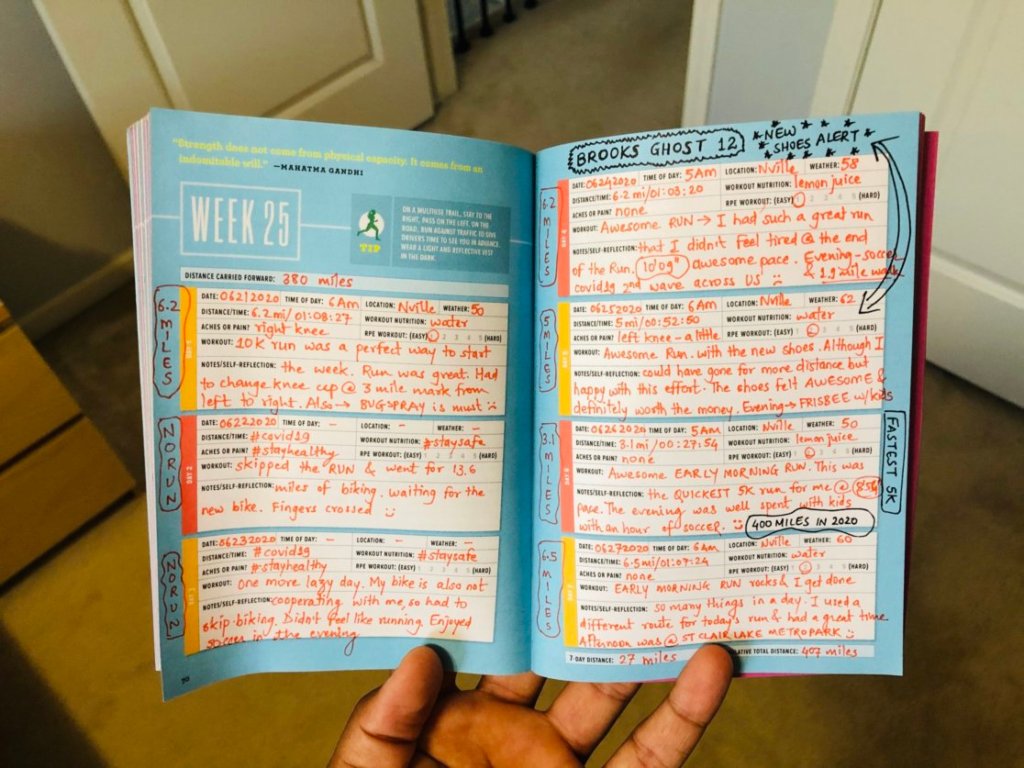 "Strength does not come from physical capacity. It comes from an
indomitable will." —MAHATMA GANDHI
WEEK 25
ON A MULTIUSE TRAIL, STAY TO THE
RIGHT, PASS ON THE LEFT. ON THE
ROAD, RUN AGAINST TRAFFIC TO GIVE
DRIVERS TIME TO SEE YOU IN ADVANCE.
WEAR A LIGHT AND REFLECTIVE VEST
IN THE DARK.
TIP
DISTANCE CARRIED FORWARD: 380 miles
6.2 MILES
DAY 1
DATE: 06212020 TIME OF DAY: 6Am LOCATION: Nville WEATHER: 50
DISTANCE/TIME: 6.2mi/01:08:27 WORKOUT NUTRITION: water
ACHES OR PAIN? right knee RPE WORKOUT: (EASY) 1 2 3 4 5 (HARD)
WORKOUT: 10K run was a perfect way to start
NOTES/SELF-REFLECTION: the week. Run was great. Had
to change knee cup @ 3 mile mark from
left to right. Also → BUGSPRAY is must
NO RUN
DAY 2
DATE: 06222020 TIME OF DAY: – LOCATION: – WEATHER: –
DISTANCE/TIME: #covid19 WORKOUT NUTRITION: #staysafe
ACHES OR PAIN? #stayhealthy RPE WORKOUT: (EASY) 1 2 3 4 5 (HARD)
WORKOUT: skipped the RUN & went for 13.6
NOTES/SELF-REFLECTION: miles of biking. waiting for the
new bike. Fingers crossed
NO RUN
DATE: 06232020 TIME OF DAY: – LOCATION: – WEATHER: –
DISTANCE/TIME: #covid19 WORKOUT NUTRITION: #staysafe
ACHES OR PAIN? #stayhealthy RPE WORKOUT: (EASY) 1 2 3 4 5 (HARD)
WORKOUT: one more lazy day. My bike is also not
NOTES/SELF-REFLECTION: cooperating with me, so had to
skip biking. Didn't feel like running. Enjoyed
soccer in the evening
BROOKS GHOST 12
NEW
SHOES ALERT
6.2 MILES
DAY 4
DATE: 06242020 TIME OF DAY: 5AM LOCATION: Nville WEATHER: 58
DISTANCE/TIME: 6.2mi/01:03:20 WORKOUT NUTRITION: lemon juice
ACHES OR PAIN? none RPE WORKOUT: (EASY) 1 2 3 4 5 (HARD)
WORKOUT: Awesome RUN → I had such a great run
NOTES/SELF-REFLECTION: that I didn't feel tired @ the end
of the Run. 10'09" awesome pace. Evening–soccer
covid19 2nd wave across US & 1.9 mile walk
5 MILES
DAY 5
DATE: 06252020 TIME OF DAY: 6AM LOCATION: Nville WEATHER: 62
DISTANCE/TIME: 5mi/00:52:50 WORKOUT NUTRITION: water
ACHES OR PAIN? left knee – a little RPE WORKOUT: (EASY) 1 2 3 4 5 (HARD)
WORKOUT: Awesome Run. with the new shoes. Although I
NOTES/SELF-REFLECTION: could have gone for more distance but
happy with this effort. The shoes felt AWESOME &
definitely worth the money. Evening → FRISBEE w/kids
3.1 MILES
DAY 6
DATE: 06262020 TIME OF DAY: 5AM LOCATION: Nville WEATHER: 50
DISTANCE/TIME: 3.1mi/00:27:54 WORKOUT NUTRITION: lemon juice
ACHES OR PAIN? none RPE WORKOUT: (EASY) 1 2 3 4 5 (HARD)
WORKOUT: Awesome EARLY MORNING RUN. This was
NOTES/SELF-REFLECTION: the QUICKEST 5K run for me @
pace. The evening was well spent with kids
with an hour of soccer.
400 MILES IN 2020
FASTEST 5K
6.5 MILES
DATE: 06272020 TIME OF DAY: 6AM LOCATION: Nville WEATHER: 60
DISTANCE/TIME: 6.5mi/01:07:24 WORKOUT NUTRITION: water
ACHES OR PAIN? none RPE WORKOUT: (EASY) 1 2 3 4 5 (HARD)
WORKOUT: EARLY MORNING RUN rocks & I get done
NOTES/SELF-REFLECTION: so many things in a day. I used a
different route for today's run & had a great time
Afternoon was @ ST CLAIR LAKE METROPARK
7-DAY DISTANCE: 27 miles TOTAL DISTANCE: 407 miles